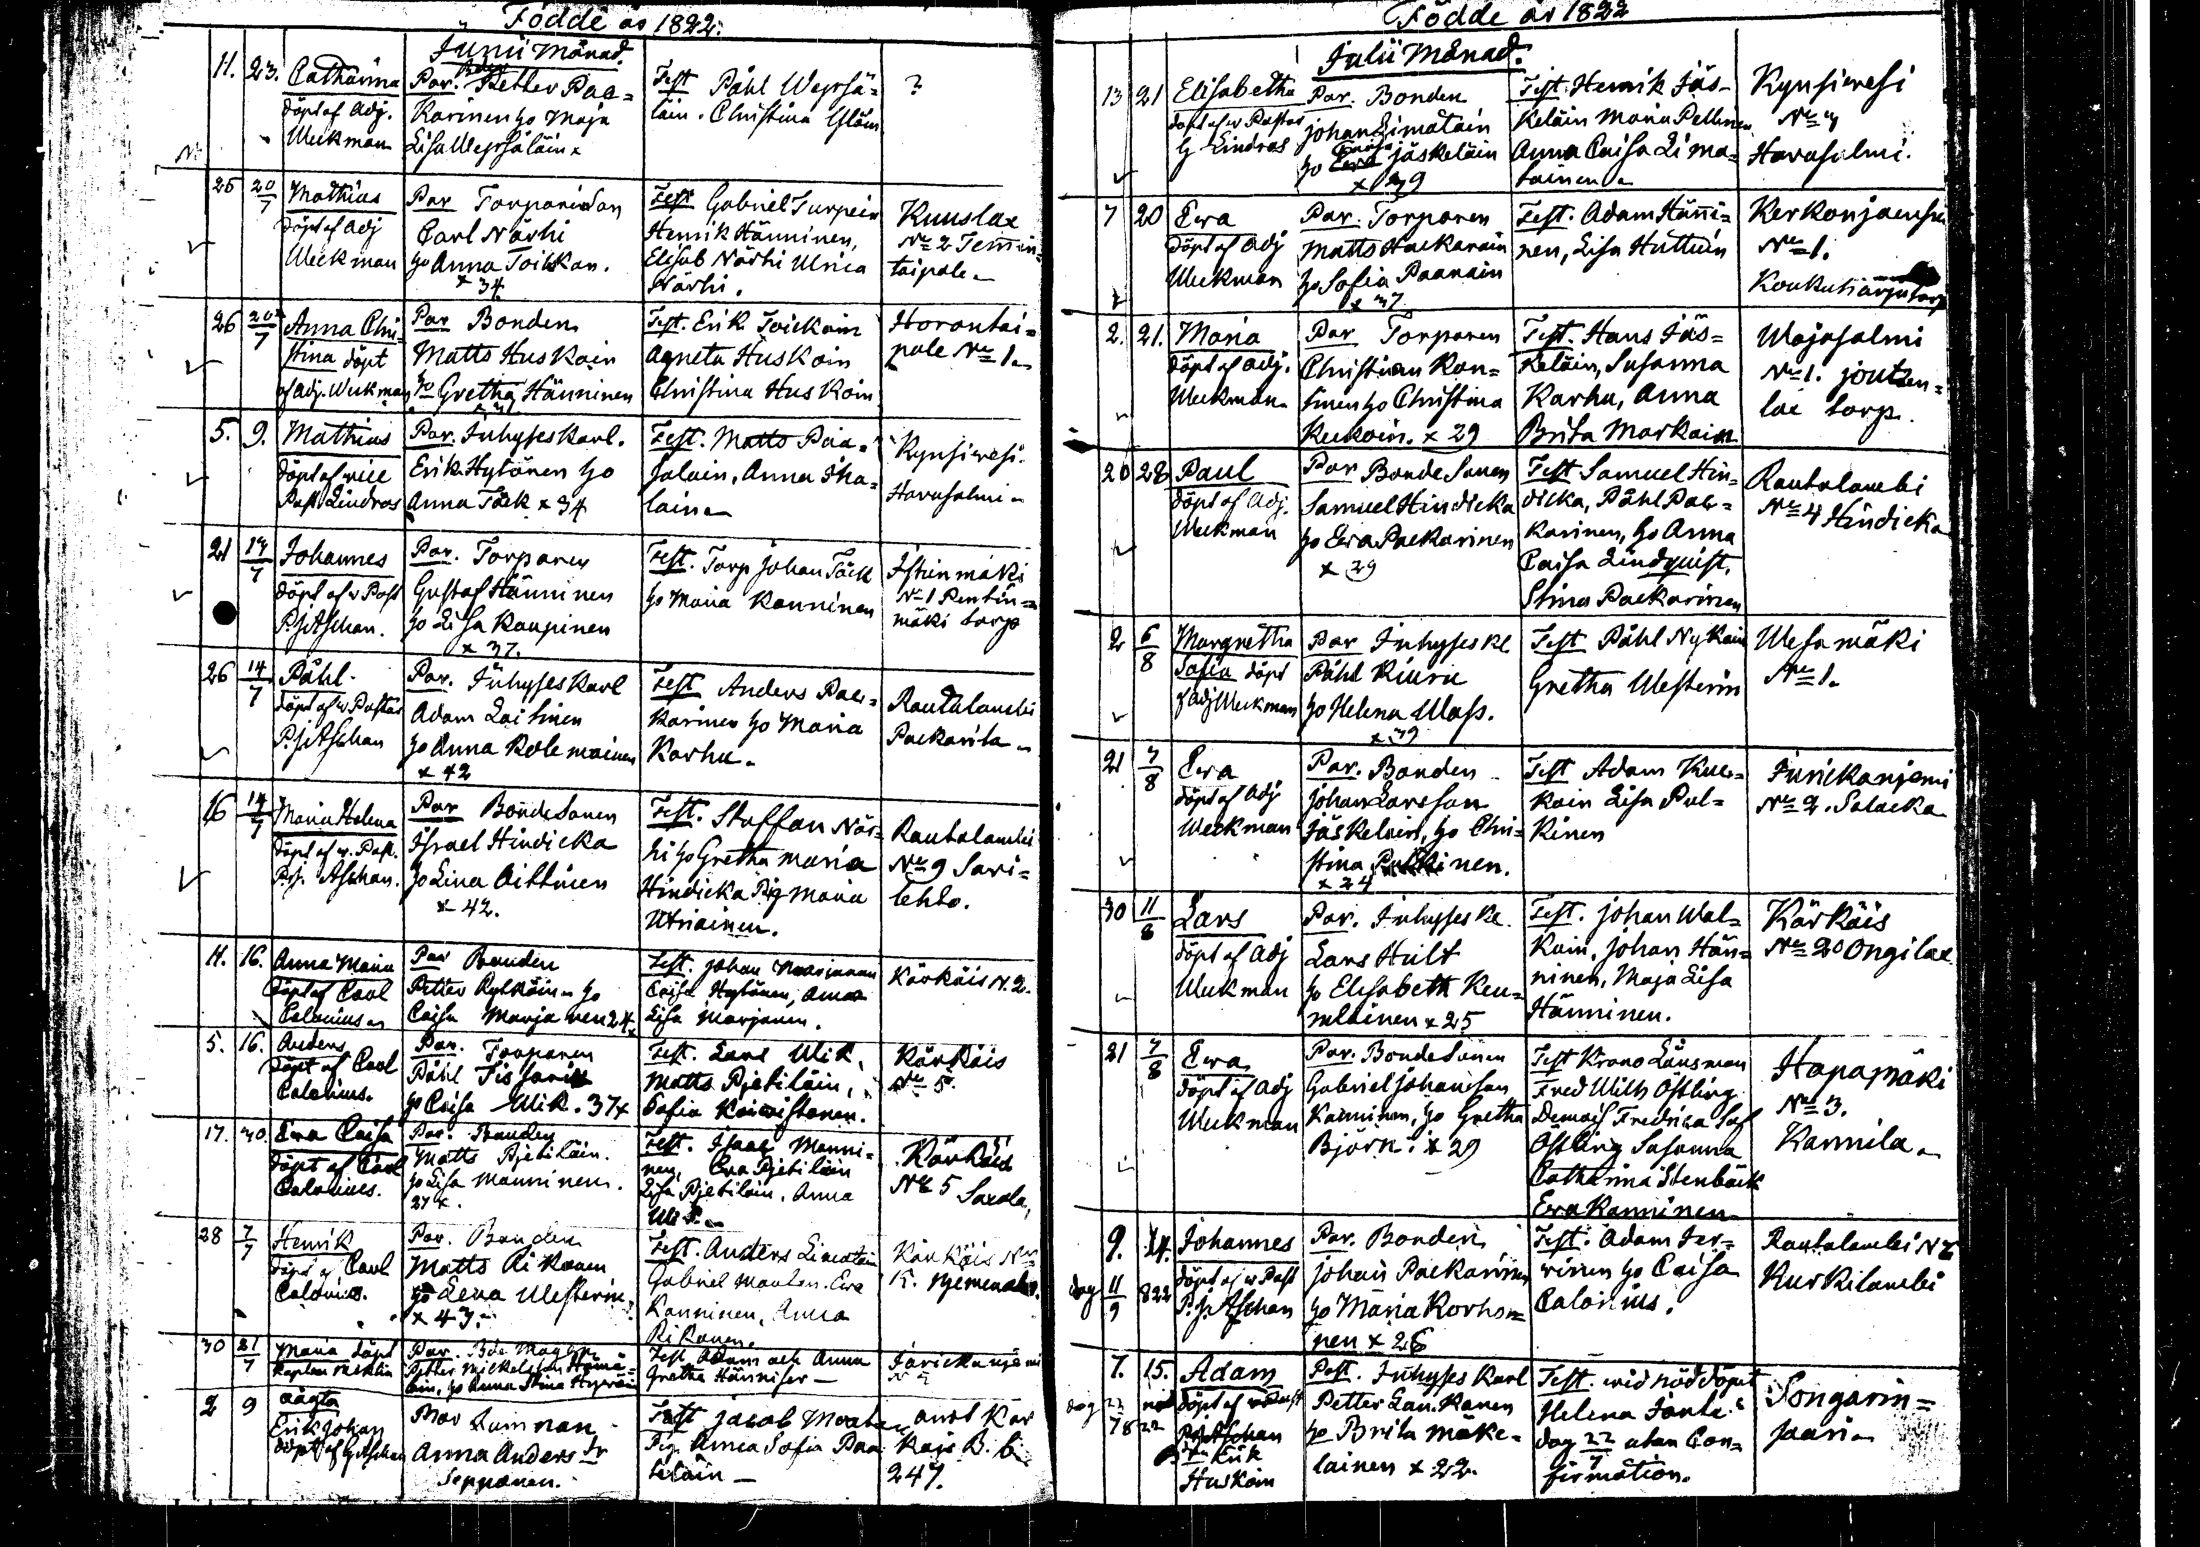 Födde år 1822.
Junii Månad.
11. 23. Catharina
döpt af Adj.
Weckman
Par. Bonden Petter Pae=
karinen ho Maja
Lisa Weyrsäläin x
Test Påhl Weyrsä=
läin. Christina
?
25 20/7 Mathias
döpt af Adj
Weckman
Par Torparesonen
Carl Närhi
ho Anna Toickan.
x 34.
Test Gabriel Turpein
Henrik Hänninen,
Elisab Närhi Ulrica
Närhi.
Kuuslax
No 2 Temin
taipale
26 20/7 Anna Chri=
stina döpt
af Adj. Weckman
Par Bonden
Matts Huskoin
ho Gretha Hänninen
Test. Erik Toickain
Agneta Huskoin
Christina Huskoin
Horontai=
pale No 1.
5. 9. Mathias
döpt af vice
Past Lindros
Par. Inhyseskarl.
Erik Hytönen ho
Anna Täck x 34
Test. Matts Paa=
jalain, Anna Iha=
lain
Kynsivesi
Havusalmi
21 14/7 Johannes
döpt af v Past
P. J. Aschan.
Par. Torparen
Gustaf Hänninen
ho Lisa Kaupinen
x 37.
Test. Torp Johan Täck
ho Maria Kanninen
Istuinmäki
No 1 Rentin=
mäki torp
26 14/7 Påhl
döpt af v Pastor
P. J. Aschan
Par. Inhyseskarl
Adam Laitinen
ho Anna Kolemainen
x 42
Test Anders Pae=
karinen ho Maria
Karhu.
Rautalambi
Paekarila
16 14/7 Maria Helena
döpt af v. Past.
P. J. Aschan.
Par Bondesonen
Israel Hindicka
ho Lina Oittinen
x 42.
Test. Staffan När=
hi ho Gretha Maria
Hindicka Pig Maria
Utriainen.
Rautalambi
No 9 Sari=
lehto.
11. 16. Anna Maria
döpt af Carl
Calonius
Par Bonden
Petter Rytköin ho
Caisa Marjanen 24 x
Test. Johan Marjanen
Caisa Hytönen, Anna
Lisa Marjanen.
Kärkäis N. 2.
5. 16. Anders
döpt af Carl
Calonius.
Par. Torparen
Påhl Tissari
ho Caisa Wik. 37 x
Test. Lars Wik,
Matts Pjetiläin,
Sofia Koivistonen.
Kärkäis
No 5.
17. 30. Eva Caisa
döpt af Carl
Calonius.
Par. Bonden
Matts Pjetiläin.
ho Lisa Manninen.
27 x.
Test. Isaac Manni=
nen, Eva Pjetiläin
Lisa Pjetiläin, Anna
Wik.
Kärkäis
No 5 Saxala,
28 7/7 Henrik
döpt af Carl
Calonius.
Par. Bonden
Matts Rikonen
ho Lena Westerin.
x 43.
Test. Anders Limatain
Gabriel Eva
Kanninen, Anna
Rikonen.
Kärkäis No
30 21/7 Maria döpt
Par.
Petter Mickelsson
ho Anna Stina
Test. Adam och Anna
Gretha Hänniser
Jäsickäniemi
2 9 oägta
Erik Johan
döpt af Aschan
Mor Qwinnan
Anna Anders Dr
Seppänen.
Test Jacob
Pig. Anna Sofia Paa
teläin
antl Kär
käis B. b
247.
Födde år 1822
Julii Månad.
13 21 Elisabetha
döpt af v Pastor
G Lindros
Par. Bonden
Johan Limatain
ho Caisa Jäskeläin
x 29
Test. Henrik Jäs=
keläin Maria Pellinen
Anna Caisa Lima=
tainen
Kynsivesi
No 4
Havusalmi.
7 20 Eva
döpt af Adj
Weckman
Par. Torparen
Matts Haekarain
ho Sofia Paanain
x 37
Test. Adam Hänni=
nen, Lisa Huttuin
Kerkonjaensu
No 1.
Koukuharju torp
2. 21. Maria
döpt af Adj.
Weckman
Par Torparen
Christian Kon=
tinen ho Christina
Keckoin. x 29
Test. Hans Jäs=
keläin, Susanna
Karhu, Anna
Brita Markain
Wajasalmi
No 1. joutsen=
lax torp.
20 28 Paul
döpt af Adj.
Weckman
Par Bondesonen
Samuel Hindicka
ho Eva Paekarinen
x 29
Test Samuel Hin=
dicka, Påhl Pae=
karinen, ho Anna
Caisa Lindquist,
Stina Paekarinen
Rautalambi
No 4 Hindicka
2 6/8 Margretha
Sofia döpt
af Adj Weckman
Par Inhyses kl
Påhl Kiuru
ho Helena Wass.
x 39
Test Påhl Nykain
Gretha Westerin
Wesamäki
No 1.
21 7/8 Eva
döpt af Adj
Weckman
Par. Bonden
Johan Larsson
Jäskeläin, ho Chri=
stina Pulkinen.
x 24
Test Adam Kuk=
koin Lisa Pul=
kinen
Jäsickäniemi
No 2. Salacka
30 11/8 Lars
döpt af Adj
Weckman
Par. Inhyses kl.
Lars Hult
ho Elisabeth Keu=
reläinen x 25
Test. Johan Wal=
kain, Johan Hän=
ninen, Maja Lisa
Hänninen.
Kärkäis
No 20 Ongilax
21 7/8 Eva
döpt af Adj
Weckman
Par. Bondesonen
Gabriel Johansson
Kanninen, ho Gretha
Björn. x 29
Test Krono Länsman
Fred Wilh Östling
Demois Fredrica Sof
Östling Susanna
Catharina Stenbäck
Eva Kanninen
Hapamäki
No 3.
Kannila
9. 14. Johannes
dog 11/9 822 döpt af v Past
P. J. Aschan
Par. Bonden
Johan Paekarinen
ho Maria Korho=
nen x 26
Test. Adam Jer=
vinen ho Caisa
Calonius.
Rautalambi N
Kurkilambi
7. 15. Adam
dog 22/7 1822 nöd döpt af v Past
P J Aschan
Erik
Huskoin
Past. Inhyses Karl
Petter Lau. Kanen
ho Brita Mäke=
läinen x 22.
Test. wid nöddöpet
Helena Jante.
dog 22/7 utan Con=
firmation.
Songarin=
saari